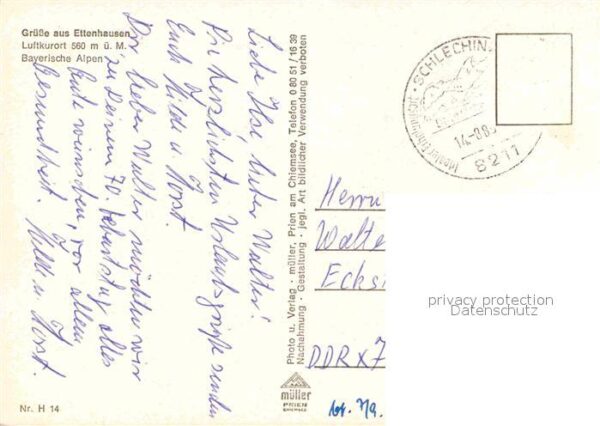 Grüße aus Ettenhausen
Luftkurort 560 m ü. M.
Bayerische Alpen
Liebe Ilse, lieber Walter!
Die herzlichsten Urlaubsgrüße senden
Euch Hilde u. Horst.
Dir lieber Walter möchten wir
zu Deinem 70. Geburtstag alles
Gute wünschen, vor allem
Gesundheit. Hilde u. Horst.
Photo u. Verlag · müller, Prien am Chiemsee, Telefon 0 80 51 / 16 39
Nachahmung · Gestaltung · jegl. Art bildlicher Verwendung verboten
müller
PRIEN
CHIEMSEE
Nr. H 14
SCHLECHIN
14.-8.85
8211
Herrn
Walte
Ecks
DDR x 7
privacy protection
Datenschutz